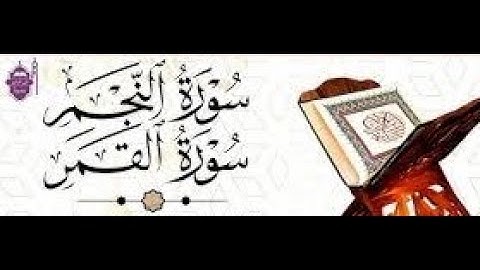 سُورَةُ ٱلنَّجْمِ
سُورَةُ ٱلْقَمَرِ